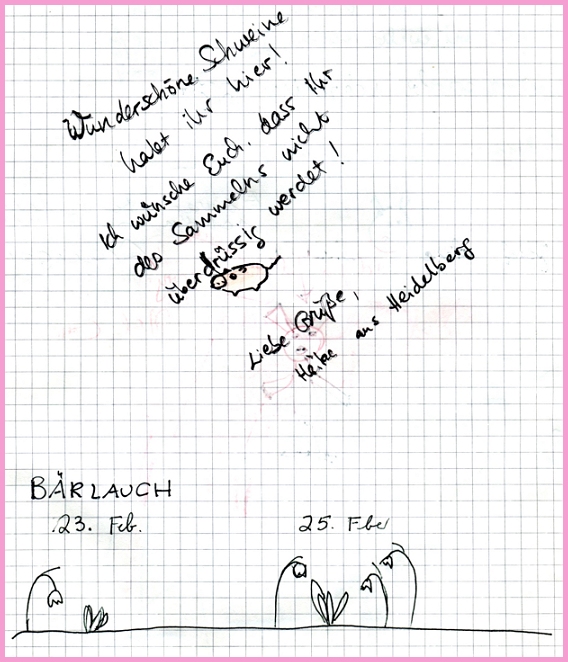 Wunderschöne Schweine
habt ihr hier!
Ich wünsche Euch, dass ihr
des Sammelns nicht
überdrüssig werdet!
Liebe Grüße,
Heike aus Heidelberg
BÄRLAUCH
23. Feb.
25. Feber